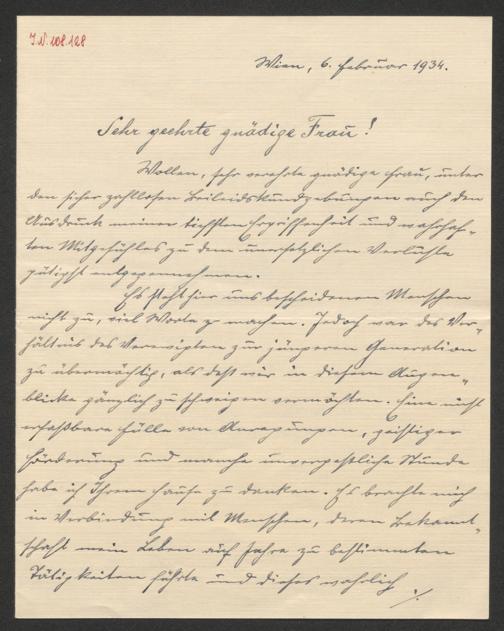 I.N. 108.128
Wien, 6. Februar 1934.
Sehr geehrte gnädige Frau!
Wollen, sehr verehrte gnädige Frau, unter
den sicher zahllosen Beileidskundgebungen auch den
Ausdruck meiner tiefsten Ergriffenheit und wahrhaf-
ten Mitgefühles zu dem unersetzlichen Verluste
gütigst entgegennehmen.
Es steht hier uns bescheidenen Menschen
nicht zu, viel Worte zu machen. Jedoch war das Ver-
hältnis des Verewigten zur jüngeren Generation
zu übermächtig, als daß wir in diesem Augen-
blicke gänzlich zu schweigen vermöchten. Eine nicht
erfaßbare Fülle von Anregungen, geistiger
Förderung und manche unvergeßliche Stunde
habe ich Ihrem Hause zu danken. Es brachte mich
in Verbindung mit Menschen, deren Bekannt-
schaft mein Leben auf Jahre zu bestimmten
Tätigkeiten führte und dieses wahrlich
./.